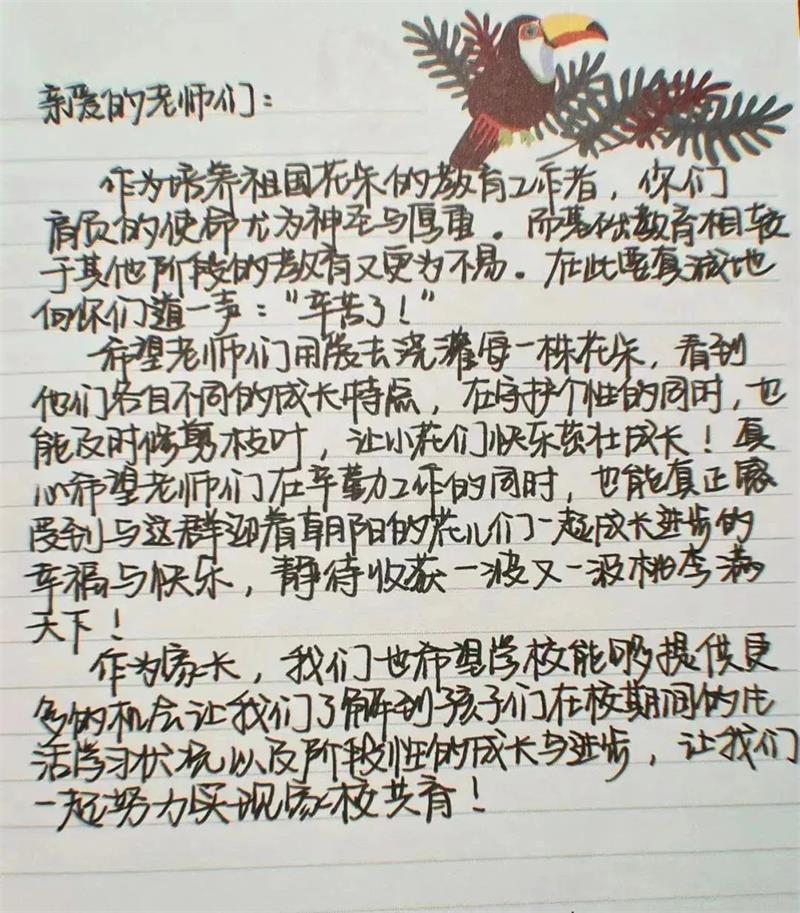 亲爱的老师们：
作为培养祖国花朵的教育工作者，你们
肩负的使命尤为神圣与厚重。而基础教育相较
于其他阶段的教育又更为不易。在此要真诚地
向你们道一声："辛苦了！"
希望老师们用爱去浇灌每一株花朵，看到
他们各自不同的成长特点，在守护个性的同时，也
能及时修剪枝叶，让小花们快乐茁壮成长！真
心希望老师们在辛勤工作的同时，也能真正感
受到与这群迎着朝阳的花儿们一起成长进步的
幸福与快乐，静待收获一波又一波桃李满
天下！
作为家长，我们也希望学校能够提供更
多的机会让我们了解到孩子们在校期间的生
活学习状况以及阶段性的成长与进步，让我们
一起努力实现家校共育！